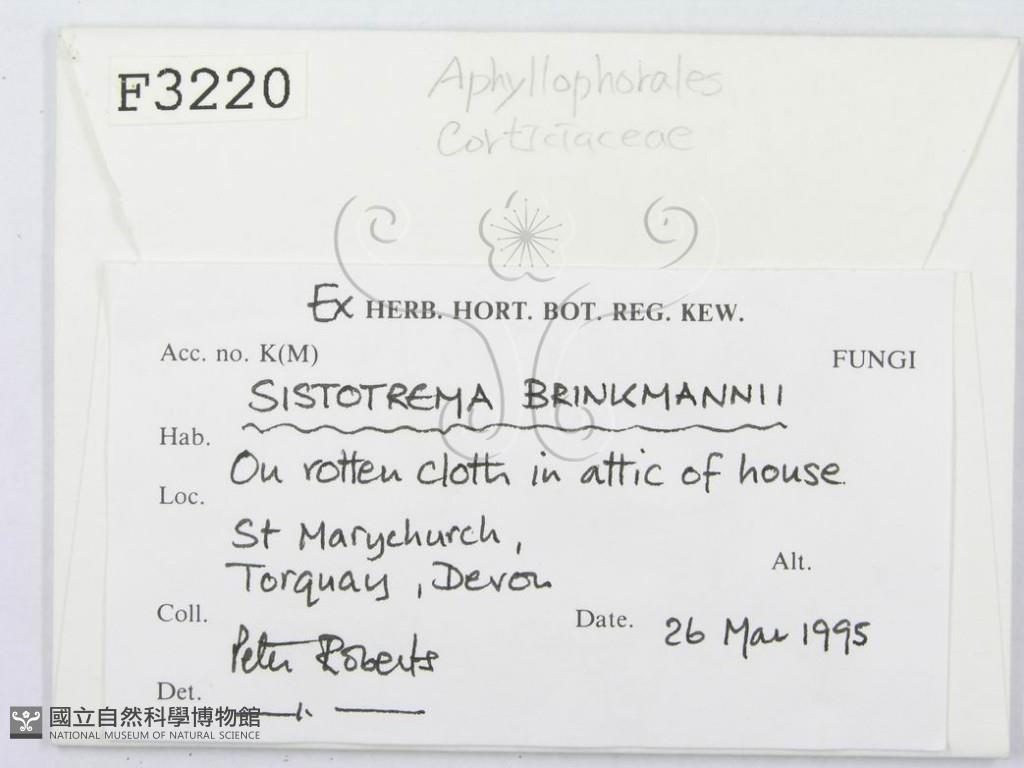 F3220
Aphyllophorales
Corticiaceae
Ex HERB. HORT. BOT. REG. KEW.
Acc. no. K(M)
FUNGI
SISTOTREMA BRINKMANNII
Hab.
On rotten cloth in attic of house.
Loc.
St Marychurch,
Torquay, Devon
Alt.
Coll.
Peter Roberts
Date. 26 Mar 1995
Det.
—"—
國立自然科學博物館
NATIONAL MUSEUM OF NATURAL SCIENCE